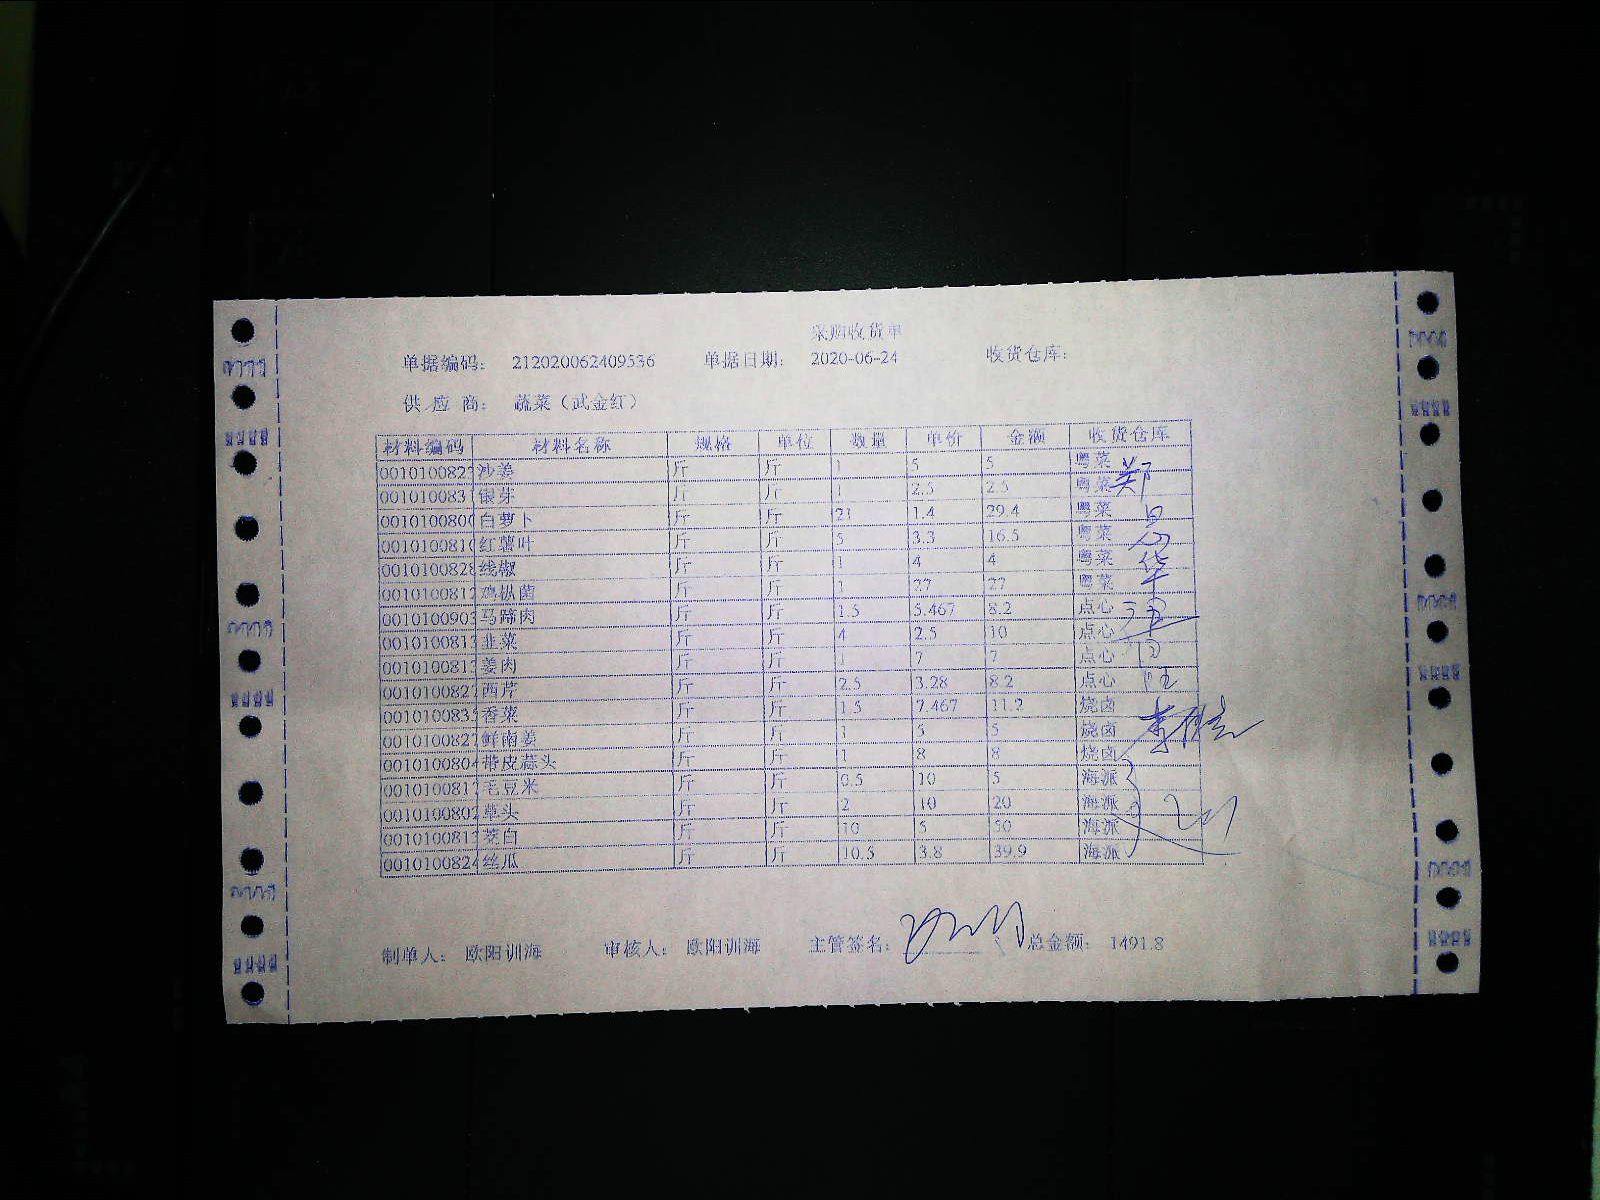 采购收货单
单据编码： 212020062409536 单据日期： 2020-06-24 收货仓库：
供 应 商： 蔬菜（武金红）
材料编码 材料名称 规格 单位 数量 单价 金额 收货仓库
001010082 沙姜 斤 斤 1 5 5 粤菜
001010083 银芽 斤 斤 1 2.5 2.5 粤菜
001010080 白萝卜 斤 斤 21 1.4 29.4 粤菜
001010081 红薯叶 斤 斤 5 3.3 16.5 粤菜
001010082 线椒 斤 斤 1 4 4 粤菜
001010081 鸡枞菌 斤 斤 1 27 27 粤菜
001010090 马蹄肉 斤 斤 1.5 5.467 8.2 点心
001010081 韭菜 斤 斤 4 2.5 10 点心
001010081 姜肉 斤 斤 1 7 7 点心
001010082 西芹 斤 斤 2.5 3.28 8.2 点心
001010083 香菜 斤 斤 1.5 7.467 11.2 烧卤
001010082 鲜南姜 斤 斤 1 5 5 烧卤
001010080 带皮蒜头 斤 斤 1 8 8 烧卤
001010081 毛豆米 斤 斤 0.5 10 5 海派
001010080 草头 斤 斤 2 10 20 海派
001010081 茭白 斤 斤 10 5 50 海派
001010082 丝瓜 斤 斤 10.5 3.8 39.9 海派
制单人： 欧阳训海 审核人： 欧阳训海 主管签名： 总金额： 1491.8